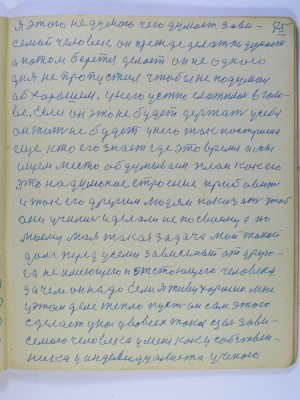 75
я этого не думаю чего думает зави-
семый человек он прежде делат подумает
а потом берется делает он не одного
дня не пропустил чтобы не подумал
об хорошем. у него устно сложилось в голо-
ве, если он это не будет держать у себя
он жить не будет у него тоже построено
еще кто его знает где это время а мы
ищем место обдумываем план как его
это надуманое строение прибавить
и тоже его другим людям показат чтоб
они учились и делали не по своему а по
моему моя такая задача мой такой
долг перед усеми зависемый от друго-
га не имеющего и жестоющего человека
зачем он надо если я живу хорошо мне
у этом деле тепло пуст он сам этого
сделает у нас у во всех такая цел зави-
семого человека умей как у собствен-
ника у индивидуалиста ученого